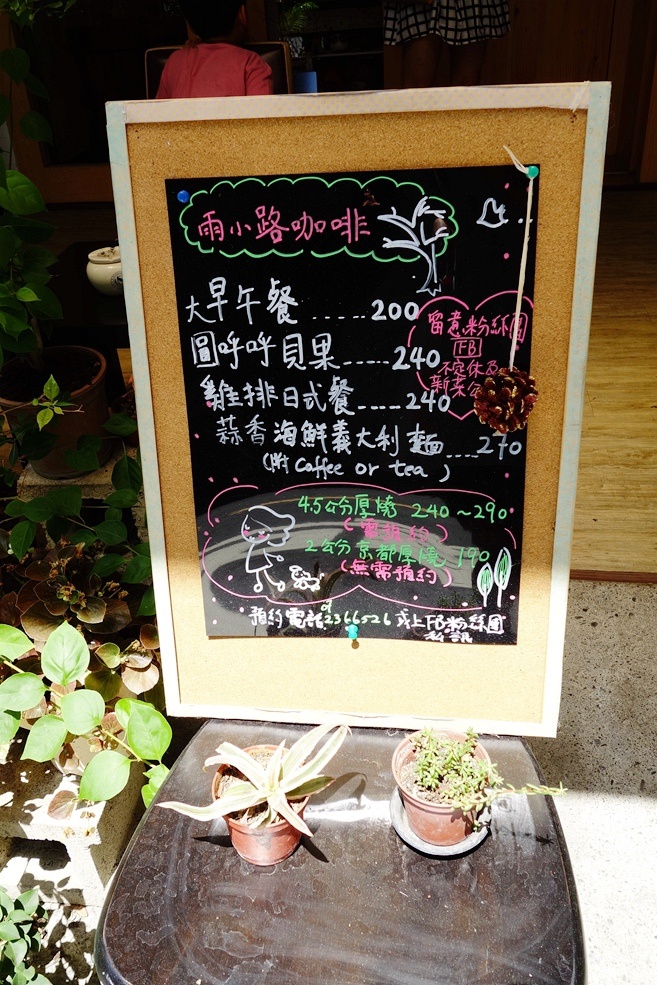 雨小路咖啡
大早午餐 ...... 200
圓呼呼貝果 ----- 240
雞排日式餐 ---- 240
蒜香海鮮義大利麵 .... 270
(附 Coffee or tea )
留意粉絲團
FB
不定休及
新菜公
4.5公分厚燒 240～290
(需預約)
2公分京都厚燒 190
(無需預約)
預約電話 2366526 或上FB粉絲團
私訊